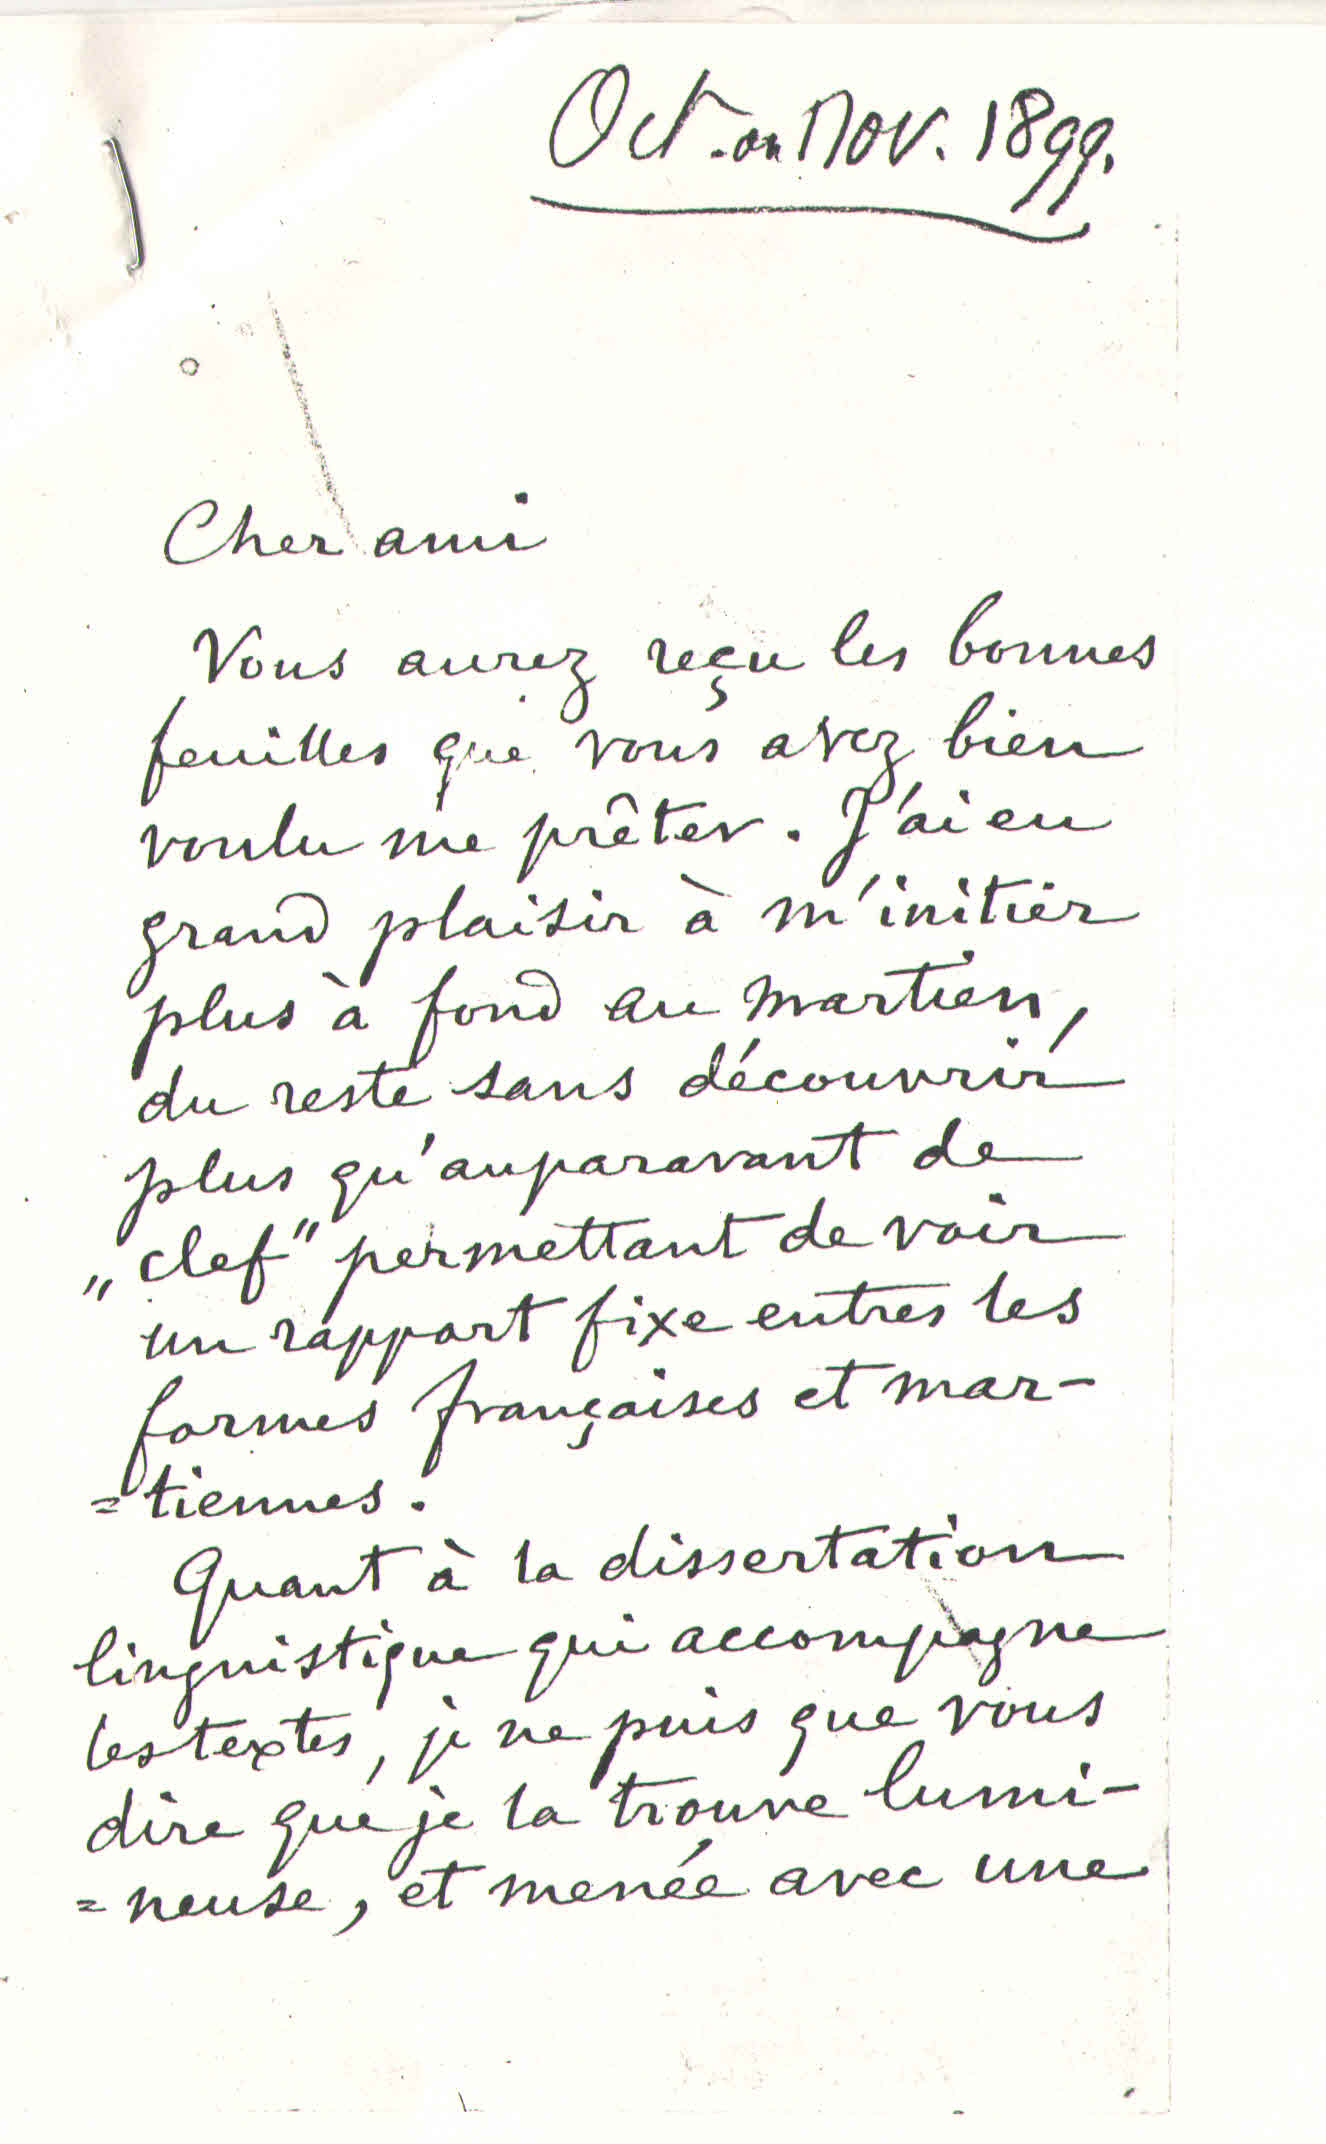 Oct. ou Nov. 1899.
Cher ami
Vous aurez reçu les bonnes
feuilles que vous avez bien
voulu me prêter. J'ai eu
grand plaisir à m'initier
plus à fond au martien,
du reste sans découvrir
plus qu'auparavant de
„clef" permettant de voir
un rapport fixe entres les
formes françaises et mar-
=tiennes.
Quant à la dissertation
linguistique qui accompagne
les textes, je ne puis que vous
dire que je la trouve lumi-
=neuse, et menée avec une